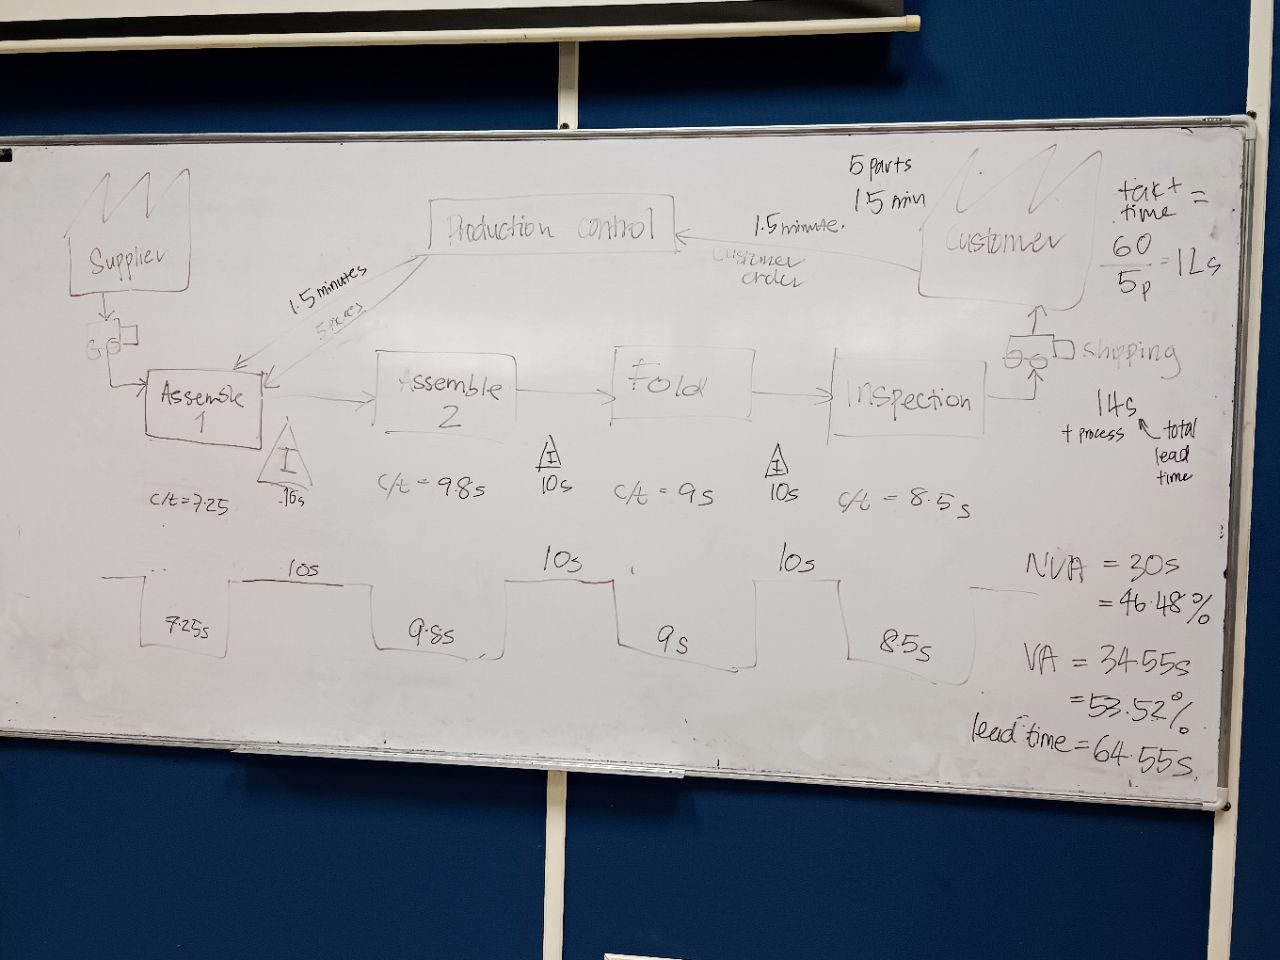 5 parts
15 min
takt time =
60 / 5p = 12s
Supplier
Production control
1.5 minute.
Customer order
Customer
1.5 minutes
Shipping
Assemble 1
Assemble 2
Fold
Inspection
14s
+ process
total lead time
I
I
I
10s
10s
c/t = 7.25
c/t = 9.8s
c/t = 9s
c/t = 8.5s
10s
10s
10s
7.25s
9.8s
9s
8.5s
NVA = 30s
= 46.48%
VA = 34.55s
= 53.52%
lead time = 64.55s